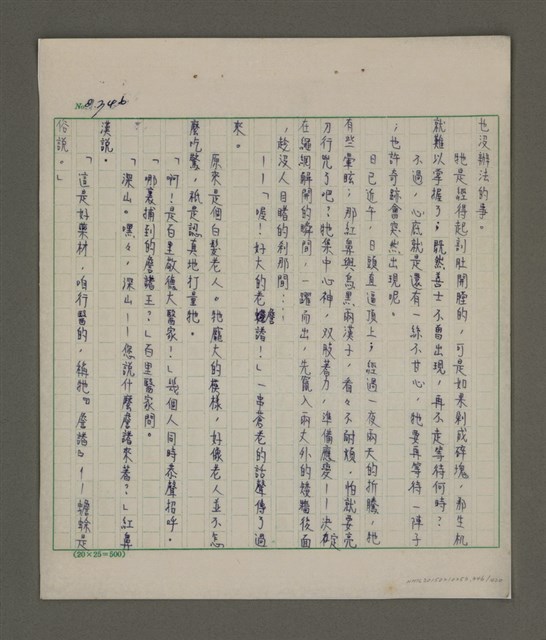 No. 8.346
也沒辦法的事。
牠是經得起剖肚開膛的，可是如果剁成碎塊，那生机
就難以掌握了；既然善士不曾出現，再不走等待何時？
不過，心底就是還有一絲不甘心，牠要再等待一陣子
；也許奇跡會突然出現呢。
日已近午，日頭直逼頂上；經過一夜兩天的折騰，牠
有些暈眩；那紅鼻與烏黑兩漢子，看々不耐煩，怕就要亮
刀行兇了吧？牠集中心神，双股著力，準備應変——決定
在繩網解開的瞬間，一躍而出，先竄入兩丈外的矮牆後面
，趁沒人目睹的刹那間……
——「喔！好大的老詹諸！」一串蒼老的話聲傳了過
來。
原來是個白髮老人。牠龐大的模樣，好像老人並不怎
麼吃驚，祇是認真地打量牠。
「啊！是百里敬德大醫家！」幾個人同時恭聲招呼。
「哪裏捕到的詹諸王？」百里醫家問。
「深山。嘿々，深山——您說什麼詹諸來著？」紅鼻
漢說。
「這是好藥材，咱行醫的，稱牠『詹諸』——蟾蜍是
俗說。」
(20×25=500)